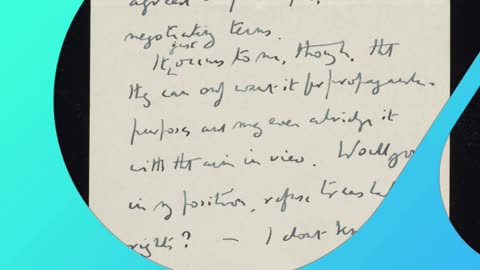 negotiating terms.
It just occurs to me, though, that
they can only want it for propaganda
purposes and may even abridge it
with that aim in view. Would you
in my position, refuse translat
rights? — I dont